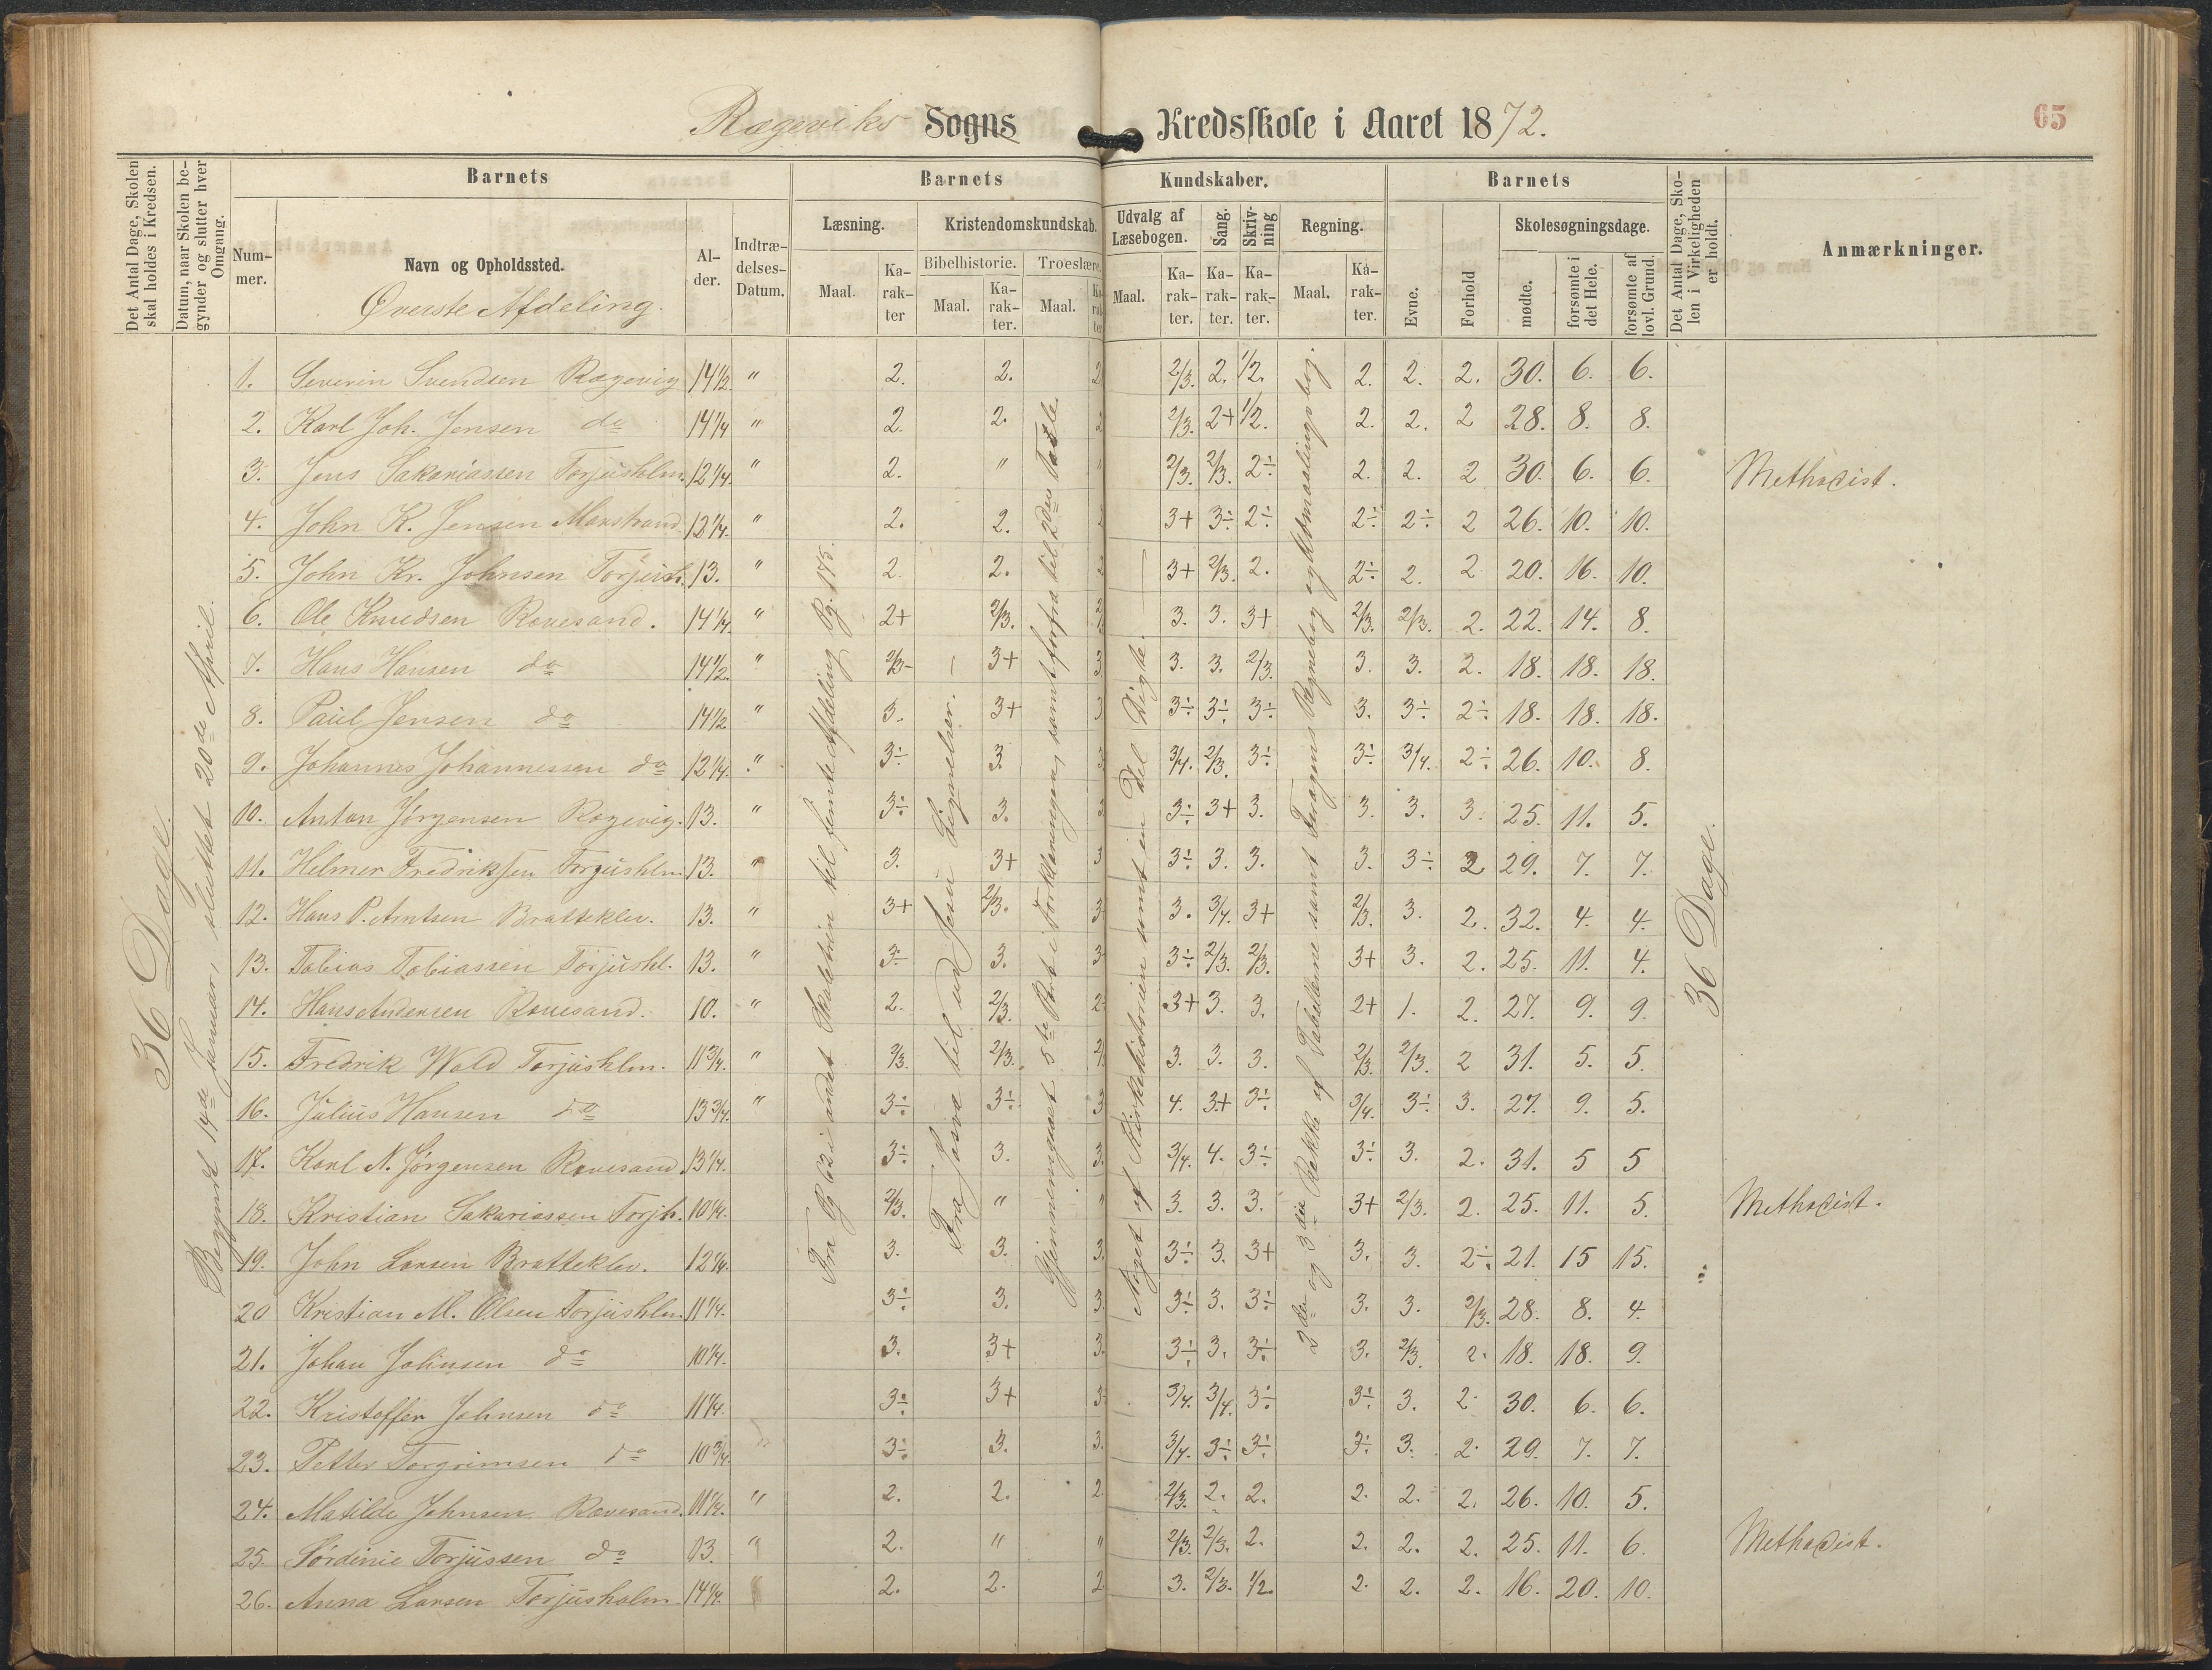 Rægeviks Sogns Kredsskole i Aaret 1872.
65
Det Antal Dage, Skolen skal holdes i Kredsen.
Datum, naar Skolen begynder og slutter hver Omgang.
Barnets
Nummer.
Navn og Opholdssted.
Øverste Afdeling.
Alder.
Indtrædelses-Datum.
Barnets Kundskaber.
Læsning.
Maal. Karakter
Kristendomskundskab.
Bibelhistorie. Troeslære.
Maal. Karakter. Maal. Karakter
Udvalg af Læsebogen.
Maal. Karakter.
Sang. Karakter.
Skrivning Karakter.
Regning.
Maal. Karakter.
Barnets
Evne. Forhold
Skolesøgningsdage.
mødte. forsømte i det Hele. forsømte af lovl. Grund.
Det Antal Dage, Skolen i Virkeligheden er holdt.
Anmærkninger.
36 Dage.
Begyndt 14de Januar, sluttet 20de April.
Fra Pg 62 i andet Skoletrin til femte Afdeling Pg. 175.
Fra Josva til ud Jesu Lignelser.
Gjennemgaaet 5te Part i Forklaringen, samt forfra til 2den Tavle
Noget af Kirkehistorien samt en Del Digte.
2den og 3die Række af Tabellerne samt Regnebog og Udmaalingsbog.
36 Dage.
1. Severin Svendsen Rægevig 14 1/2 " 2. 2. 2 2/3. 2. 1/2. 2. 2. 2. 30. 6. 6.
2. Karl Joh. Jensen do 14 1/4 " 2. 2. 2 2/3. 2+ 1/2. 2. 2. 2 28. 8. 8.
3. Jens Sakariassen Torjusholm. 12 1/4. " 2. " " 2/3. 2/3. 2÷ 2. 2. 2 30. 6. 6. Methodist.
4. John K. Jensen Marstrand 12 1/4. " 2. 2. 2 3+ 3÷ 2÷ 2÷ 2÷ 2 26. 10. 10.
5. John Kr. Johnsen Torjush. 13. " 2. 2. 2 3+ 2/3. 2. 2÷ 2. 2 20. 16. 10.
6. Ole Knudsen Rævesand. 14 1/4. " 2+ 2/3. 3. 3. 3+ 2/3. 2/3. 2. 22. 14. 8.
7. Hans Hansen do 14 1/2. " 2/3 3+ 3. 3. 3. 2/3. 3. 3. 2. 18. 18. 18.
8. Paul Jensen do 14 1/2 " 3. 3+ 3 3÷ 3÷ 3÷ 3. 3÷ 2÷ 18. 18. 18.
9. Johannes Johannessen do 12 1/4. " 3÷ 3. 3 3/4. 2/3. 3÷ 3÷ 3/4. 2÷ 26. 10. 8.
10. Anton Jørgensen Rægevig. 13. " 3÷ 3. 3 3÷ 3+ 3. 3. 3. 3. 25. 11. 5.
11. Helmer Fredriksen Torjushlm 13. " 3. 3+ 3 3÷ 3. 3. 3. 3÷ 2 29. 7. 7.
12. Hans P. Arntsen Bratteklev. 13. " 3+ 2/3. 3 3. 3/4. 3+ 2/3. 3. 2. 32. 4. 4.
13. Tobias Tobiassen Torjushl. 13. " 3÷ 3. 3 3÷ 2/3. 2/3. 3+ 3. 2. 25. 11. 4.
14. Hans Andersen Rævesand. 10. " 2. 2/3. 2 3+ 3. 3. 2+ 1. 2. 27. 9. 9.
15. Fredrik Wold Torjushlm. 11 3/4. " 2/3. 2/3. 3. 3. 3. 2/3. 2/3. 2 31. 5. 5.
16. Julius Hansen do 13 3/4. " 3÷ 3÷ 3 4. 3+ 3÷ 3/4. 3÷ 3. 27. 9. 5.
17. Karl N. Jørgensen Rævesand 13 1/4. 3÷ 3. 3. 3/4. 4. 3÷ 3÷ 3. 2. 31. 5 5
18. Kristian Sakariassen Torjh. 10 1/4. 2/3. " " 3. 3. 3. 3+ 2/3. 2. 25. 11. 5. Methodist.
19. John Larsen Bratteklev. 12 1/4. 3. 3. 3. 3÷ 3. 3+ 3. 3. 2÷ 21. 15 15.
20 Kristian M. Olsen Torjushlm. 11 1/4. 3÷ 3. 3. 3÷ 3. 3÷ 3. 3. 2/3. 28. 8. 4.
21. Johan Johnsen do 10 1/4. 3. 3+ 3. 3÷ 3. 3÷ 3. 2/3. 2. 18. 18. 9.
22. Kristoffer Johnsen do 11 1/4. 3÷ 3+ 3 3/4. 3/4. 3÷ 3÷ 3. 2. 30. 6. 6.
23. Petter Torgrimsen do 10 3/4. " 3÷ 3. 3. 3/4. 3÷ 3÷ 3÷ 3. 2. 29. 7. 7.
24. Matilde Johnsen Rævesand. 11 1/4. " 2. 2. 2. 2/3. 2. 2. 2. 2. 2. 26. 10. 5.
25. Sørdinie Torjussen do 13. " 2. " " 2/3. 2/3. 2. 2. 2. 2. 25. 11. 6. Methodist.
26. Anna Larsen Torjusholm. 14 1/4. " 2. 2. 2. 3. 2/3. 1/2. 2. 2. 2. 16. 20. 10.